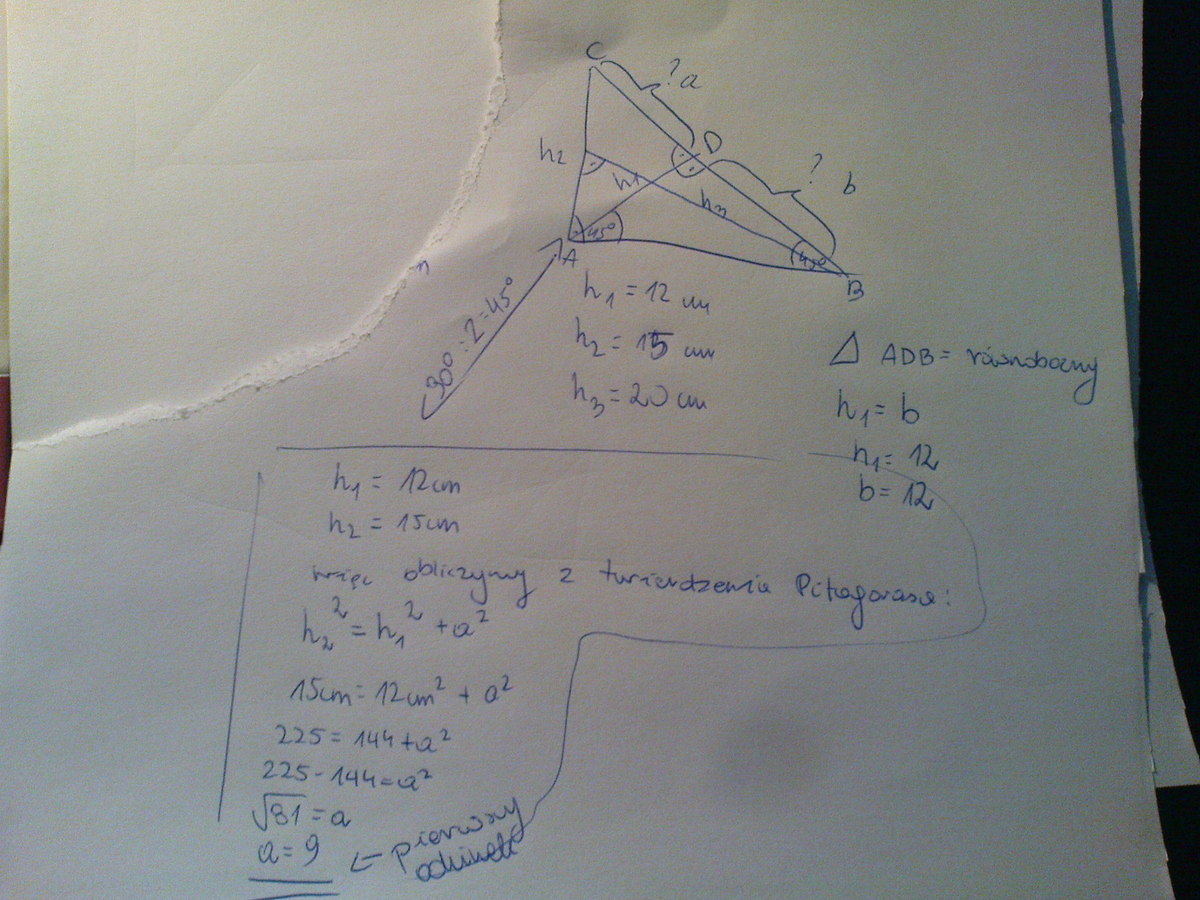 C
? a
D
h2
h1
h3
? b
45°
45°
A
B
90° : 2 = 45°
h1 = 12 cm
h2 = 15 cm
h3 = 20 cm
△ ADB = równoboczny
h1 = b
h1 = 12
b = 12
h1 = 12cm
h2 = 15cm
więc obliczymy z twierdzenia Pitagorasa:
h2² = h1² + a²
15cm = 12cm² + a²
225 = 144 + a²
225 - 144 = a²
√81 = a
a = 9 ← pierwszy
odcinek